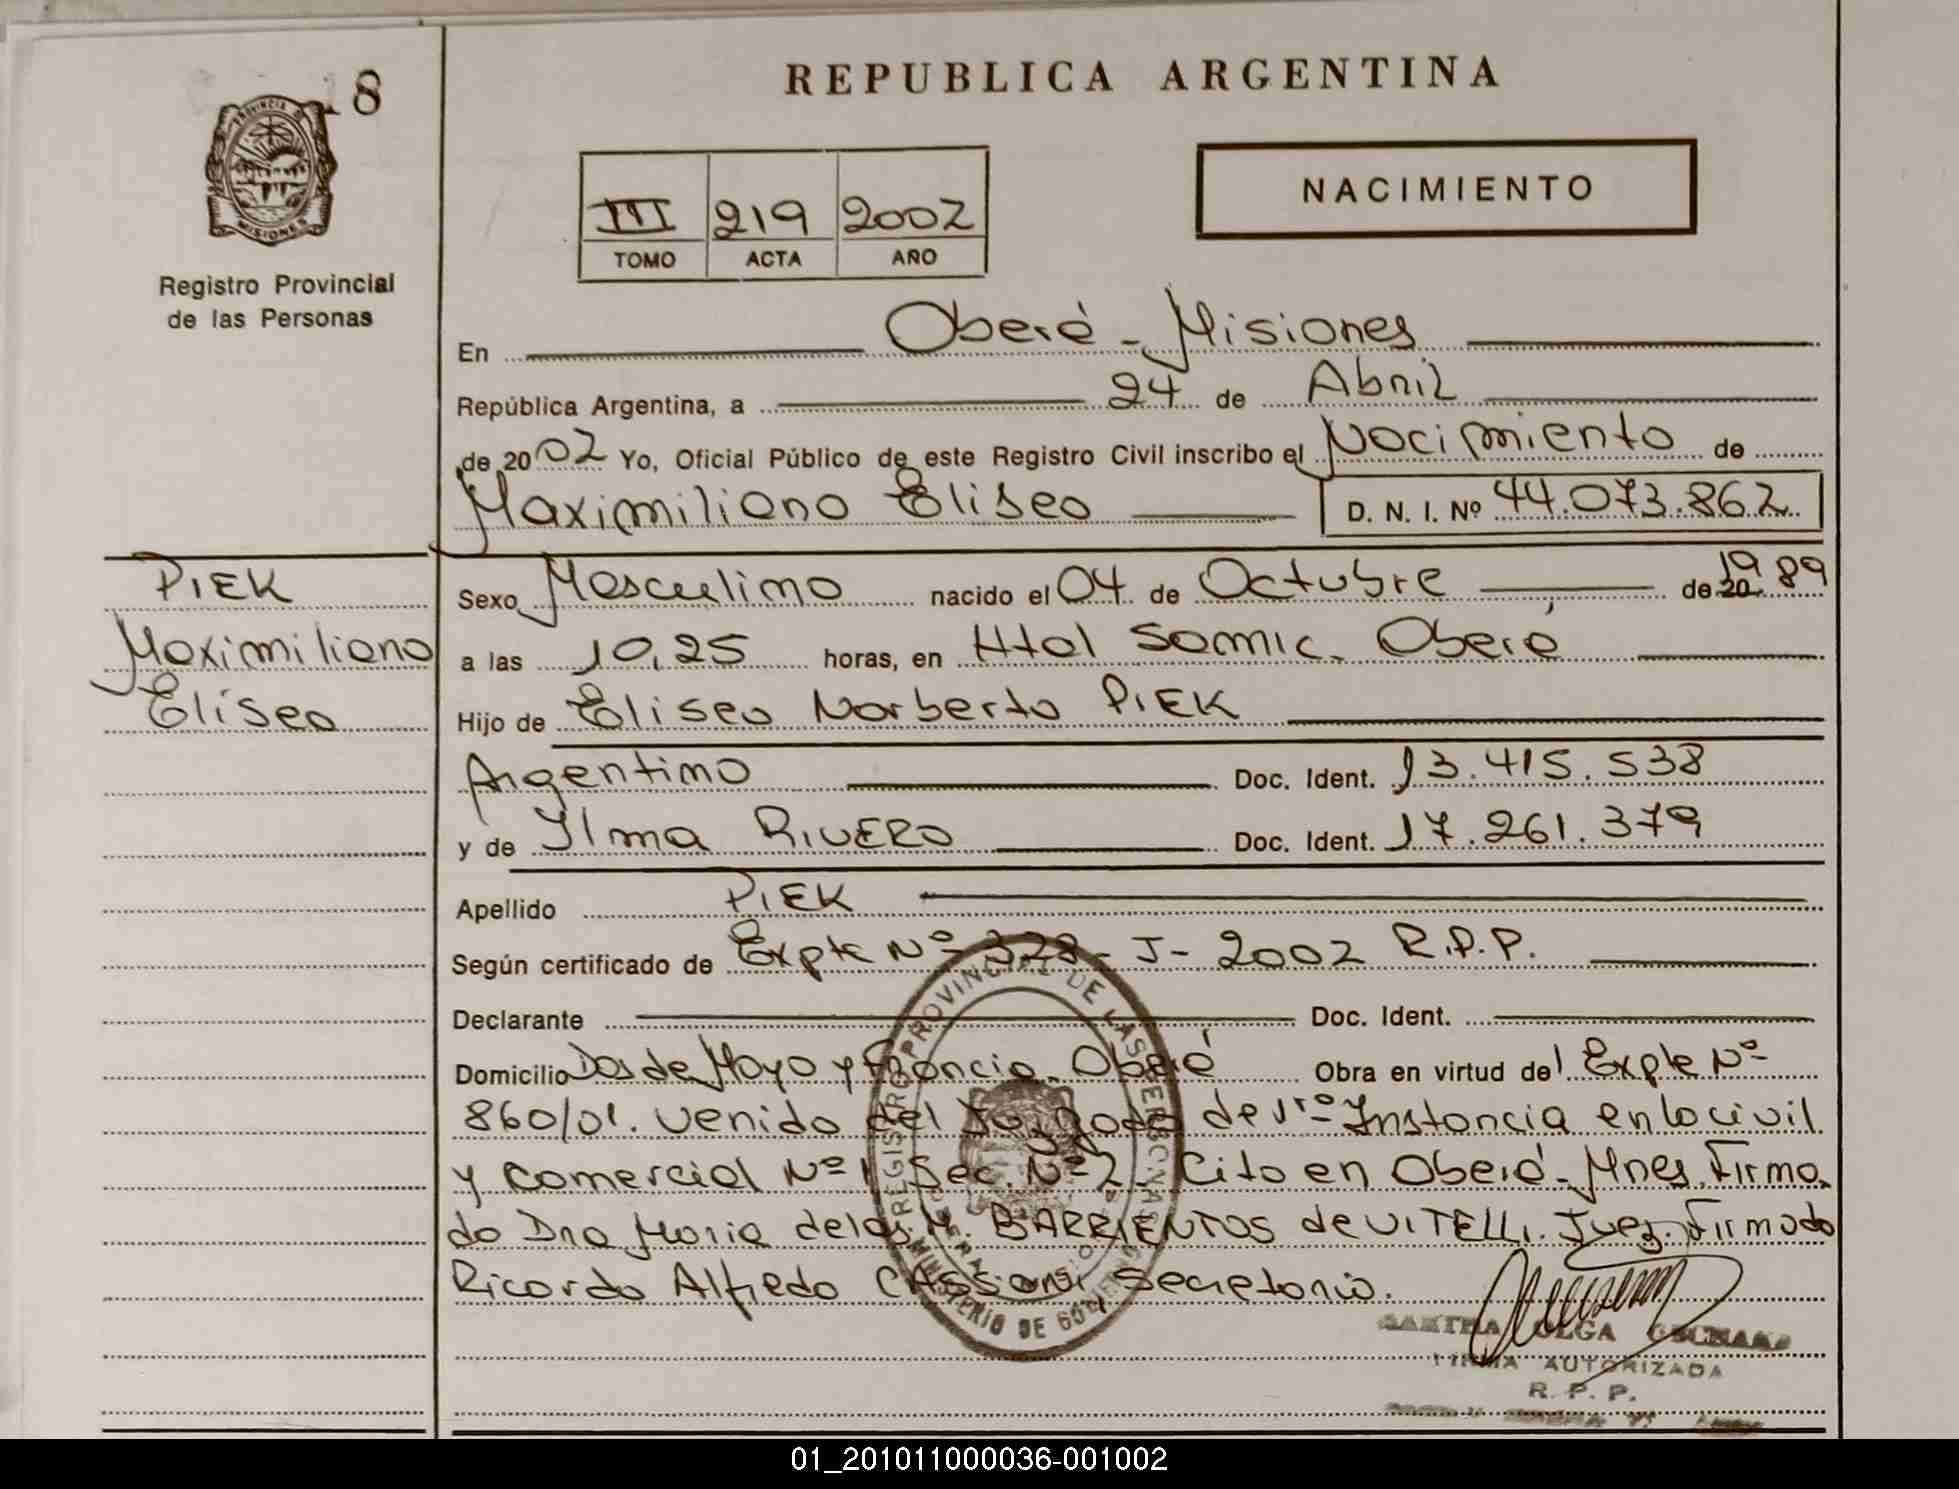 18
PROVINCIA
MISIONES
Registro Provincial
de las Personas
REPUBLICA ARGENTINA
III 219 2002
TOMO ACTA AÑO
NACIMIENTO
En Oberá - Misiones
República Argentina, a 24 de Abril
de 2002 Yo, Oficial Público de este Registro Civil inscribo el Nacimiento de
Maximiliano Eliseo D. N. I. Nº 44.073.862
PIEK
Maximiliano
Eliseo
Sexo Masculino nacido el 04 de Octubre de 20 19 89
a las 10,25 horas, en Htal Samic. Oberá
Hijo de Eliseo Norberto PIEK
Argentino Doc. Ident. 13.415.538
y de Ilma RIVERO Doc. Ident. 17.261.379
Apellido PIEK
Según certificado de Expte Nº 328-J-2002 R.P.P.
Declarante Doc. Ident.
Domicilio Dos de Mayo y Francia. Oberá Obra en virtud del Expte Nº
860/01. venido del Juzgado de 1ra Instancia en lo civil
y Comercial Nº 1 Sec. Nº 2. Cito en Oberá - Mnes. Firma
do Dra Maria de los M. BARRIENTOS de VITELLI. Juez. Firmado
Ricardo Alfredo Secretario.
REGISTRO PROVINCIAL DE LAS PERSONAS
MINISTERIO DE GOBIERNO
OLGA
FIRMA AUTORIZADA
R. P. P.
01_201011000036-001002